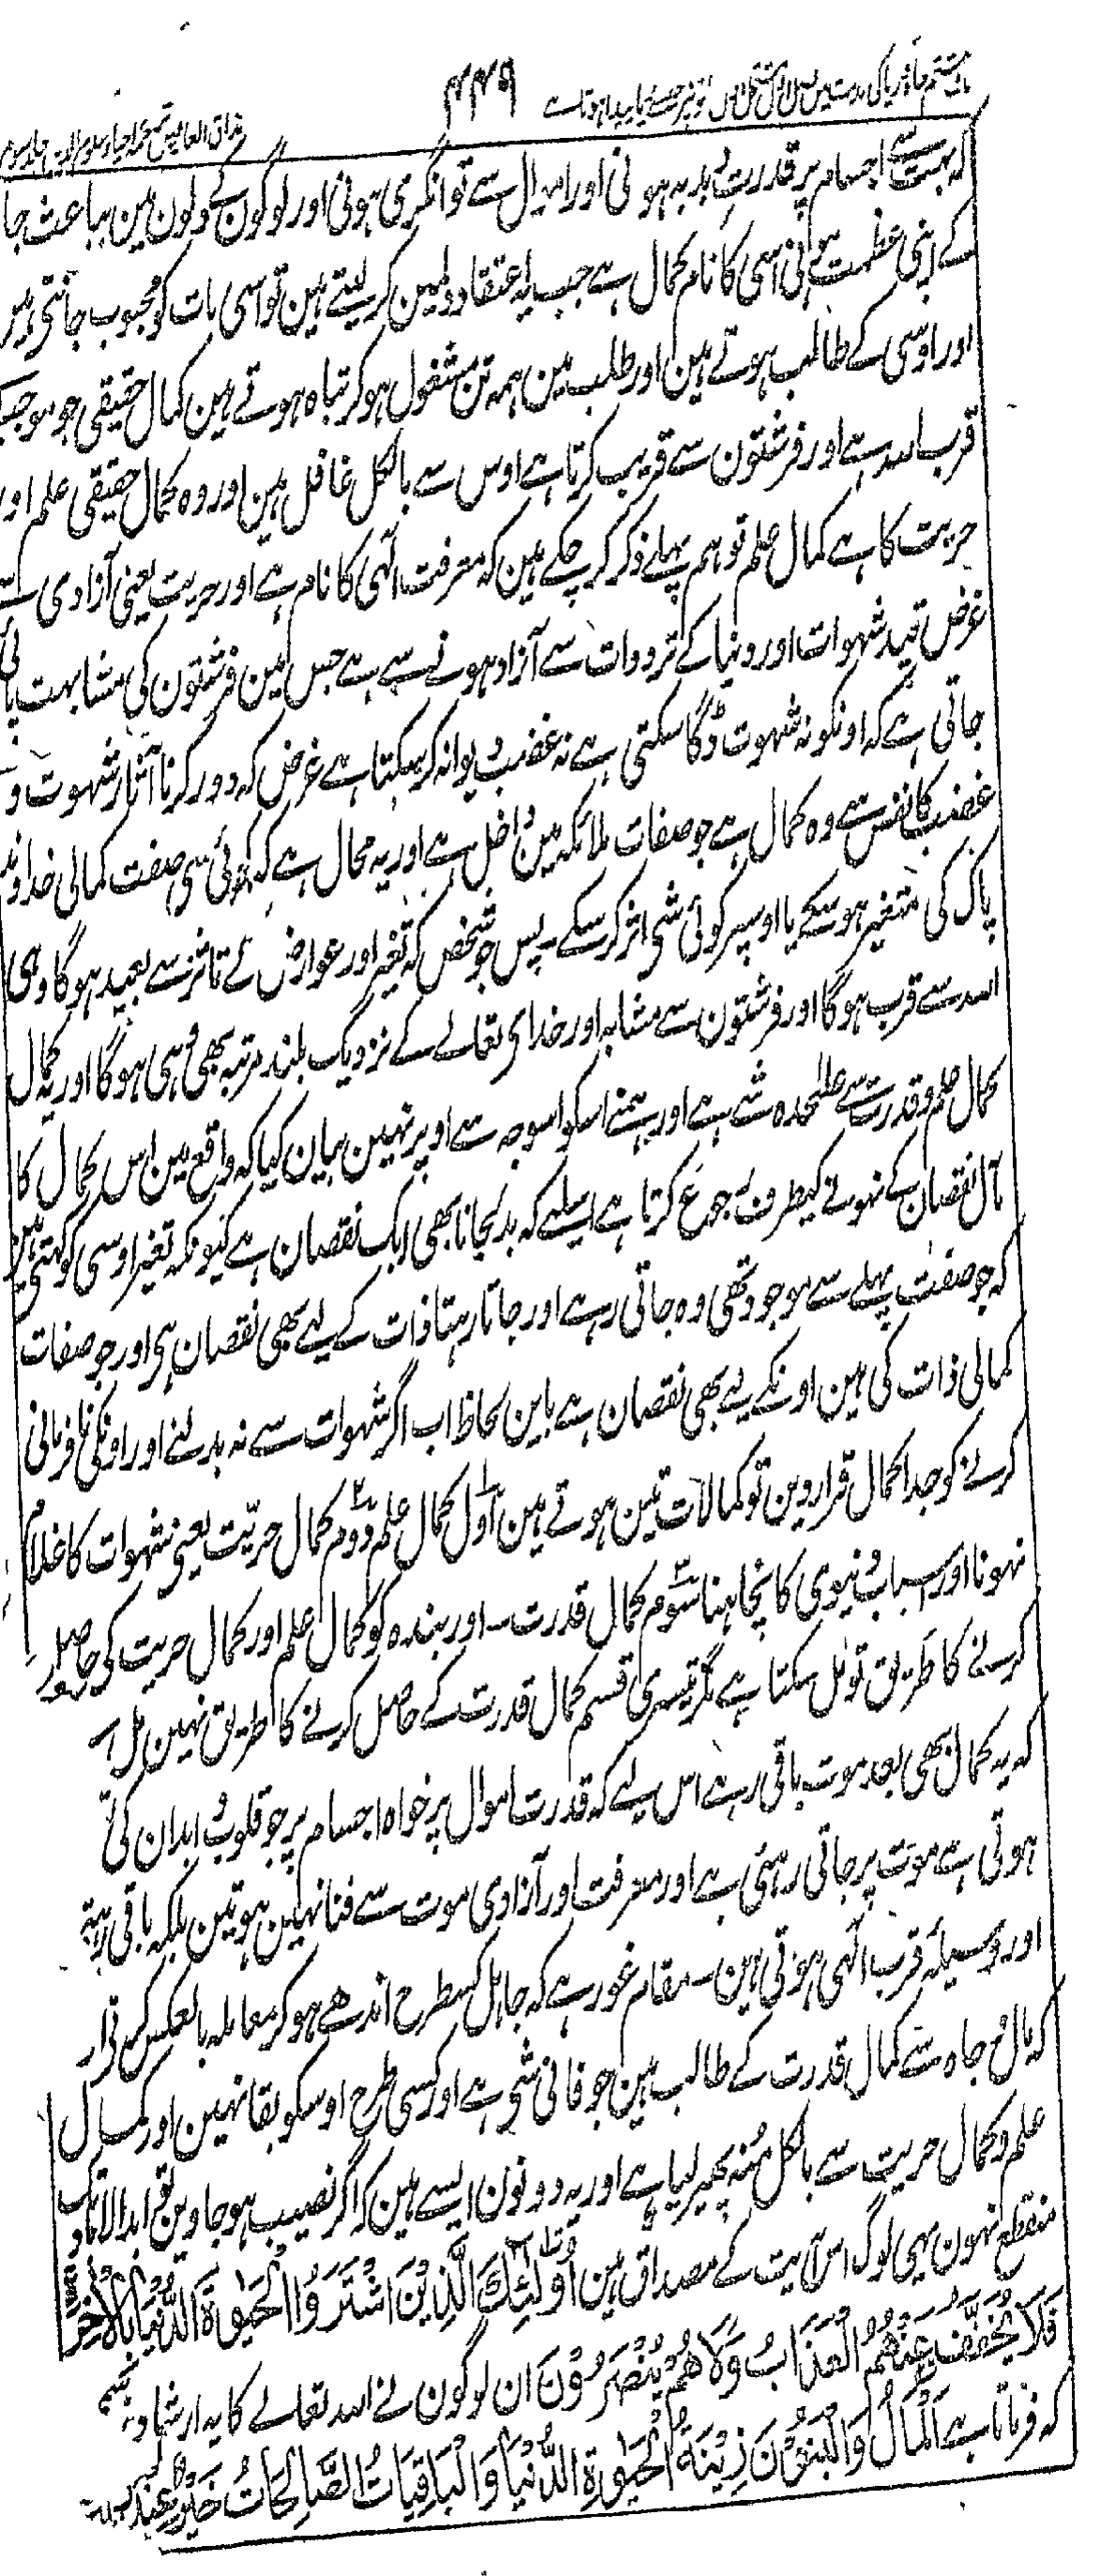 باب ہشتم جاہ و ریا کی مذمت میں
۴۴۹
مذاق العارفین ترجمہ احیاء علوم الدین جلد سوم
کہ بہت سے اجسام پر قدرت بدیہ ہوئی اور اموال سے توانگری ہوئی اور لوگون کے دلون مین بباعث جا
کے اپنی عظمت ہوئی اسی کا نام کمال ہے جب یہ اعتقاد دلمین کر لیتے ہین تو اسی بات کو محبوب جانتی ہین
اور اوسی کے طالب ہوتے ہین اور طلب مین ہمہ تن مشغول ہو کر تباہ ہوتے ہین کمال حقیقی جو موجب
قرب اللہ ہے اور فرشتون سے قریب کرتا ہے اوس سے بالکل غافل ہین اور وہ کمال حقیقی علم اور
حریت کا ہے کمال علم تو ہم پہلے ذکر کر چکے ہین کہ معرفت الٰہی کا نام ہے اور حریت یعنی آزادی سے
غرض قید شہوات اور دنیا کے ترددات سے آزاد ہونے سے ہے جس مین فرشتون کی مشابہت پائی
جاتی ہے کہ اونکو نہ شہوت ڈگا سکتی ہے نہ غضب دیوانہ کر سکتا ہے غرض کہ دور کرنا آثار شہوت و
غضب کا نفس سے وہ کمال ہے جو صفات ملائکہ مین داخل ہے اور یہ محال ہے کہ کوئی سی صفت کمالی خداوند
پاک کی متغیر ہو سکے یا اوسپر کوئی شی اثر کر سکے۔ پس جو شخص کہ تغیر اور عوارض کے تاثر سے بعید ہوگا وہی
اللہ سے قرب ہوگا اور فرشتون سے مشابہ اور خدای تعالے کے نزدیک بلند مرتبہ بھی وہی ہوگا اور یہ کمال
کمال علم و قدرت سے علٰحدہ شے ہے اور ہمنے اسکو اسوجہ سے اوپر نہین بیان کیا کہ واقع مین اس کمال کا
مآل نقصان کے نہونے کیطرف رجوع کرتا ہے اسلیے کہ بدلجانا بھی ایک نقصان ہے کیونکہ تغیر اوسی کو کہتی ہین
کہ جو صفت پہلے سے موجود تھی وہ جاتی رہے اور جاتا رہتا ذات کے لیے بھی نقصان ہی اور جو صفات
کمالی ذات کی ہین اونکے لیے بھی نقصان ہے باین لحاظ اب اگر شہوات سے نہ بدلنے اور اونکی نافرمانی
کرنے کو جدا کمال قرار دین تو کمالات تین ہوتے ہین اول کمال علم دوم کمال حریت یعنی شہوات کا غلام
نہونا اور اسباب دنیوی کا نچاہنا سوم کمال قدرت۔ اور بندہ کو کمال علم اور کمال حریت کی حاصل
کرنے کا طریق تو مل سکتا ہے مگر تیسری قسم کمال قدرت کے حاصل کرنے کا طریق نہین مل
کہ یہ کمال بھی بعد موت باقی رہے اس لیے کہ قدرت اموال پر خواہ اجسام پر جو قلوب و ابدان کی
ہوتی ہے موت پر جاتی رہتی ہے اور معرفت اور آزادی موت سے فنا نہین ہوتین بلکہ باقی رہتی
اور وسیلہ قرب الٰہی ہوتی ہین۔ مقام غور ہے کہ جاہل کسطرح اندھے ہو کر معاملہ بالعکس کر
کہ مال و جاہ سے کمال قدرت کے طالب ہین جو فانی شی ہے اور کسی طرح اوسکو بقا نہین اور کمال
علم و کمال حریت سے بالکل منہ پھیر لیا ہے اور یہ دونون ایسے ہین کہ اگر نصیب ہو جاوین تو ابد الآباد تک
منقطع نہون یہی لوگ اس آیت کے مصداق ہین أُولٰئِكَ الَّذِيْنَ اشْتَرَوُا الْحَيٰوةَ الدُّنْيَا بِالْاٰخِرَةِ
فَلَا يُخَفَّفُ عَنْهُمُ الْعَذَابُ وَلَا هُمْ يُنْصَرُوْنَ ان لوگون نے اللہ تعالے کا یہ ارشاد نہ
کہ فرماتا ہے اَلْمَالُ وَالْبَنُوْنَ زِيْنَةُ الْحَيٰوةِ الدُّنْيَا وَالْبَاقِيَاتُ الصَّالِحَاتُ خَيْرٌ عِنْدَ